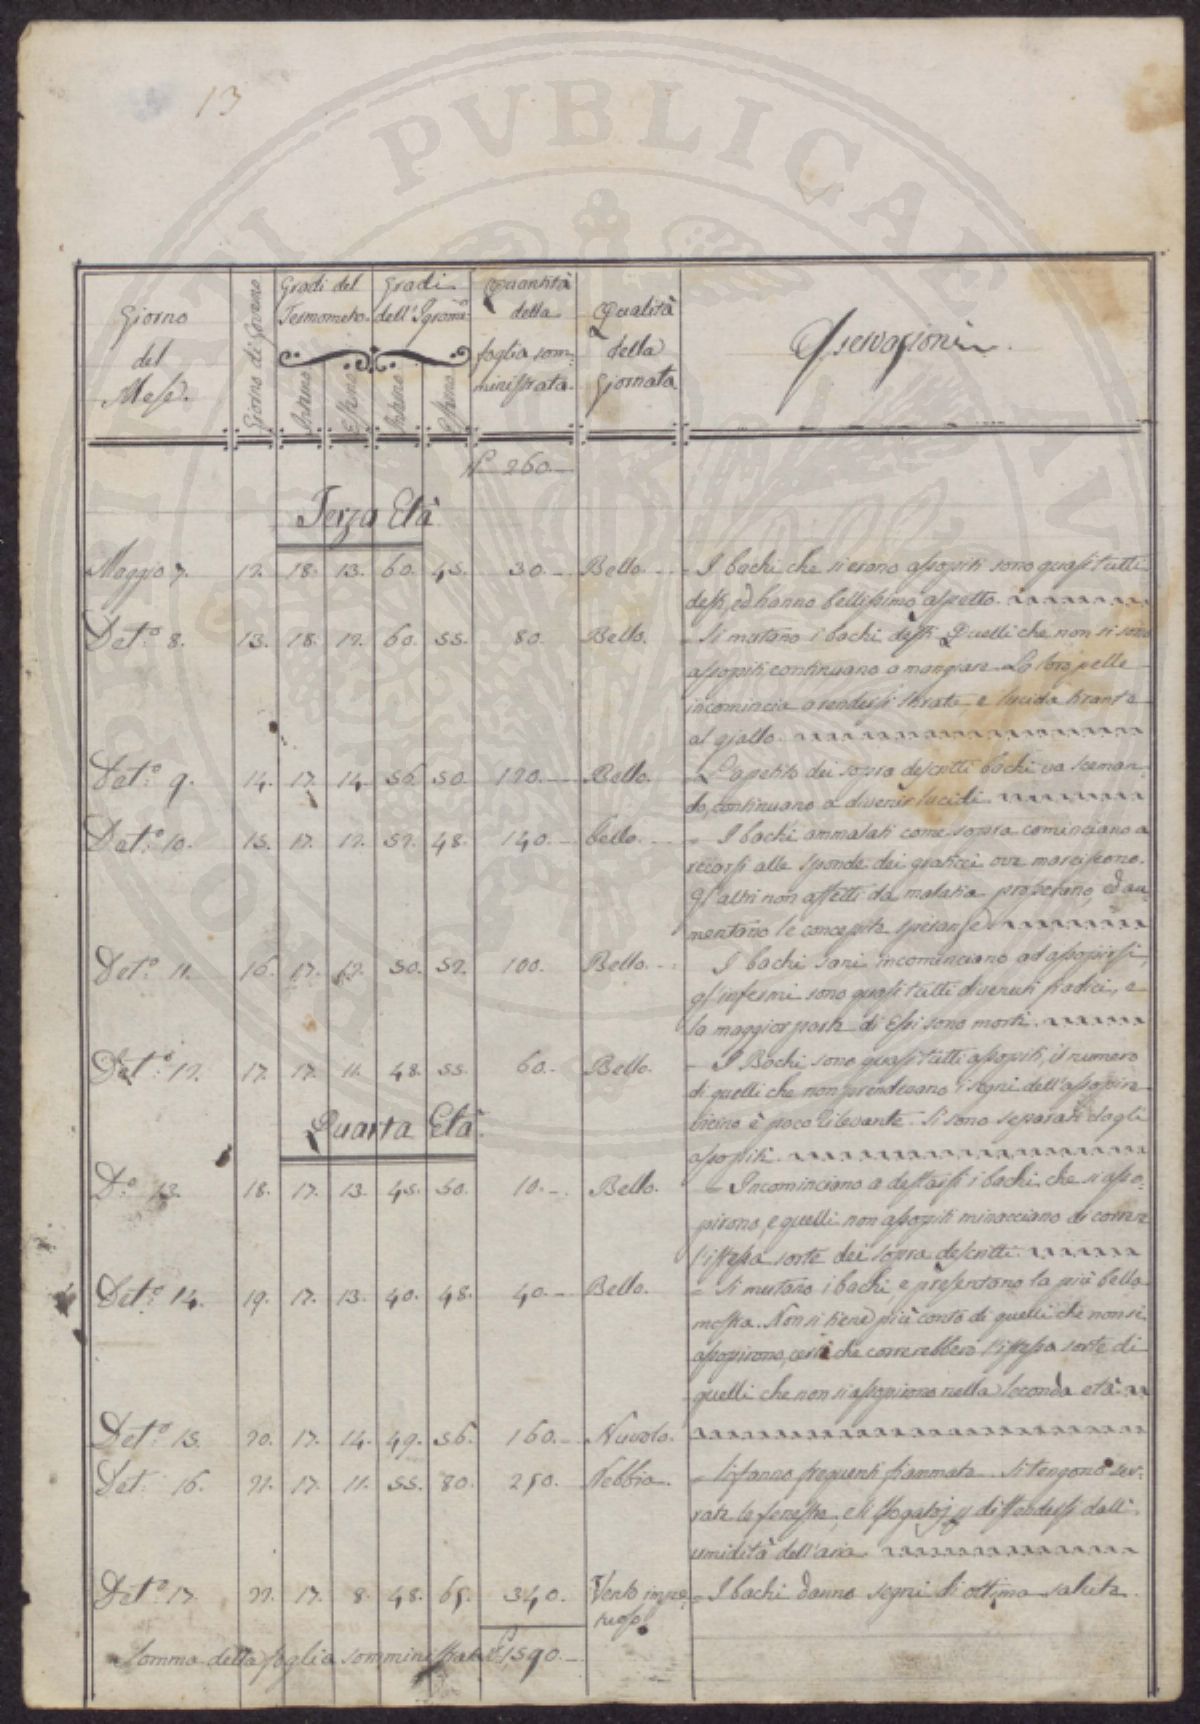 13
Giorno del Mese.
Giorno di Governo
Gradi del Termometro.
Interno
Esterno
Gradi dell'Igrom.º
Interno
Esterno
Quantità della foglia som:ministrata.
Qualità della Giornata
Osservazioni.
260.
Terza Età
Maggio 7. 12. 18. 13. 60. 45. 30. Bello. = I bachi che si erano assopiti sono quasi tutti
desti, ed hanno bellissimo aspetto.
Det.º 8. 13. 18. 12. 60. 55. 80. Bello. = Si mutano i bachi desti. Quelli che non si sono
assopiti continuano a mangiare. La loro pelle
incomincia a rendersi stirata, e lucida tirante
al giallo.
Det.º 9. 14. 17. 14. 56. 50. 120. Bello. = L'apetito dei sopra descritti bachi va sceman-
do, continuano a divenir lucidi.
Det.º 10. 15. 17. 12. 52. 48. 140. bello. = I bachi ammalati come sopra cominciano a
recarsi alle sponde dei graticci ove marciscono.
Gl'altri non affetti da malatia prosperano, ed au-
mentano le concepite speranze.
Det.º 11. 16. 17. 12. 50. 52. 100. Bello. I bachi sani incominciano ad assopirsi,
gl'infermi sono quasi tutti divenuti fradici, e
la maggior parte di Essi sono morti.
Det.º 12. 17. 17. 11. 48. 55. 60. Bello. = I Bachi sono quasi tutti assopiti, il numero
di quelli che non prendevano i segni dell'assopire
vicino è poco rilevante. Si sono separati dagli
assopiti.
Quarta Età.
D.º 13. 18. 17. 13. 45. 50. 10. Bello. = Incominciano a destarsi i bachi che si asso-
pirono, e quelli non assopiti minacciano di correre
l'istessa sorte dei sopra descritti.
Det.º 14. 19. 17. 13. 40. 48. 40. Bello. = Si mutano i bachi e presentano la più bella
mostra. Non si tiene più conto di quelli che non si
assopirono, certi che correrebbero l'istessa sorte di
quelli che non si assopirono nella Seconda età
Det.º 15. 20. 17. 14. 49. 56. 160. Nuvolo.
Det. 16. 21. 17. 11. 55. 80. 250. Nebbia. = Si fanno frequenti fiammate. Si tengono ser-
rate le fenestre, e li sfogatoj p diffendersi dall'
umidità dell'aria
Det.º 17. 22. 17. 8. 48. 65. 340. Vento impe-
tuoso. = I bachi danno segni di ottima salute.
Somma della foglia somministrata 1590.
PUBLICA